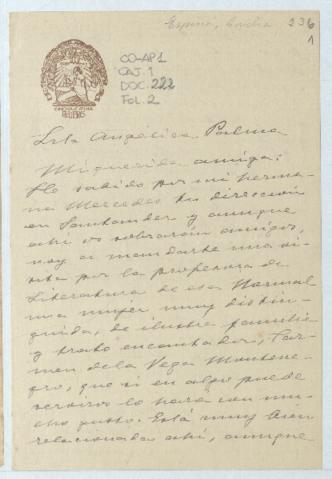 Espina, Concha 236
1
CO-AP1
CAJ. 1
DOC. 222
Fol. 2
Srta Angélica Palma
Mi querida amiga:
He sabido por mi herma-
na Mercedes tu dirección
en Santander y aunque
ahí os sobrarán amigos,
voy a mandarte una vi-
sita por la profesora de
Literatura de esa Normal
una mujer muy distin-
guida, de ilustre familia
y trato encantador, Car-
men de la Vega Montene-
gro, que si en algo puede
serviros lo hará con mu-
cho gusto. Está muy bien
relacionada ahí, aunque